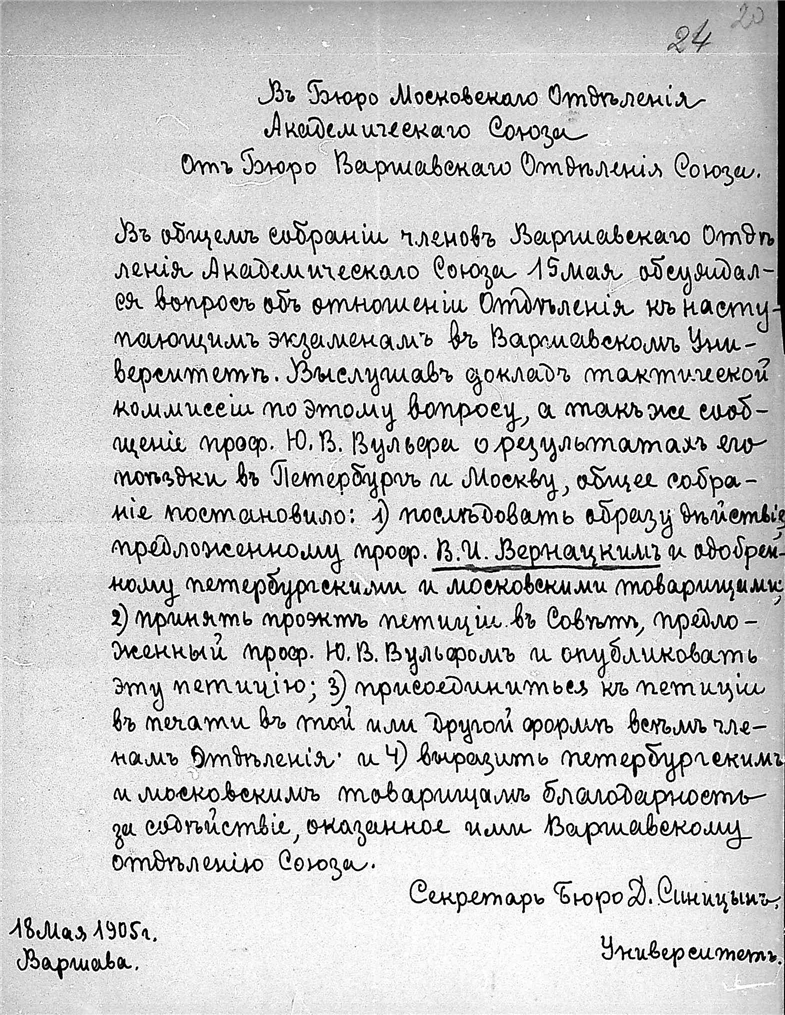 20
24
Въ Бюро Московскаго Отдѣленія
Академическаго Союза
Отъ Бюро Варшавскаго Отдѣленія Союза.
Въ общемъ собраніи членовъ Варшавскаго Отдѣ
ленія Академическаго Союза 15 мая обсуждал-
ся вопросъ объ отношеніи Отдѣленія къ насту-
пающимъ экзаменамъ въ Варшавскомъ Уни-
верситетѣ. Выслушавъ докладъ тактической
коммиссіи по этому вопросу, а также сооб-
щеніе проф. Ю. В. Вульфа о результатахъ его
поѣздки въ Петербургъ и Москву, общее собра-
ніе постановило: 1) послѣдовать образу дѣйствія,
предложенному проф. В. И. Вернацкимъ и одобрен-
ному петербургскими и московскими товарищами;
2) принять проэктъ петиціи въ Совѣтъ, предло-
женный проф. Ю. В. Вульфомъ и опубликовать
эту петицію; 3) присоединиться къ петиціи
въ печати въ той или другой формѣ всѣмъ чле-
намъ Отдѣленія и 4) выразить петербургскимъ
и московскимъ товарищамъ благодарность
за содѣйствіе, оказанное ими Варшавскому
отдѣленію Союза.
Секретарь Бюро Д. Синицынъ.
18 Мая 1905 г.
Варшава.
Университетъ.